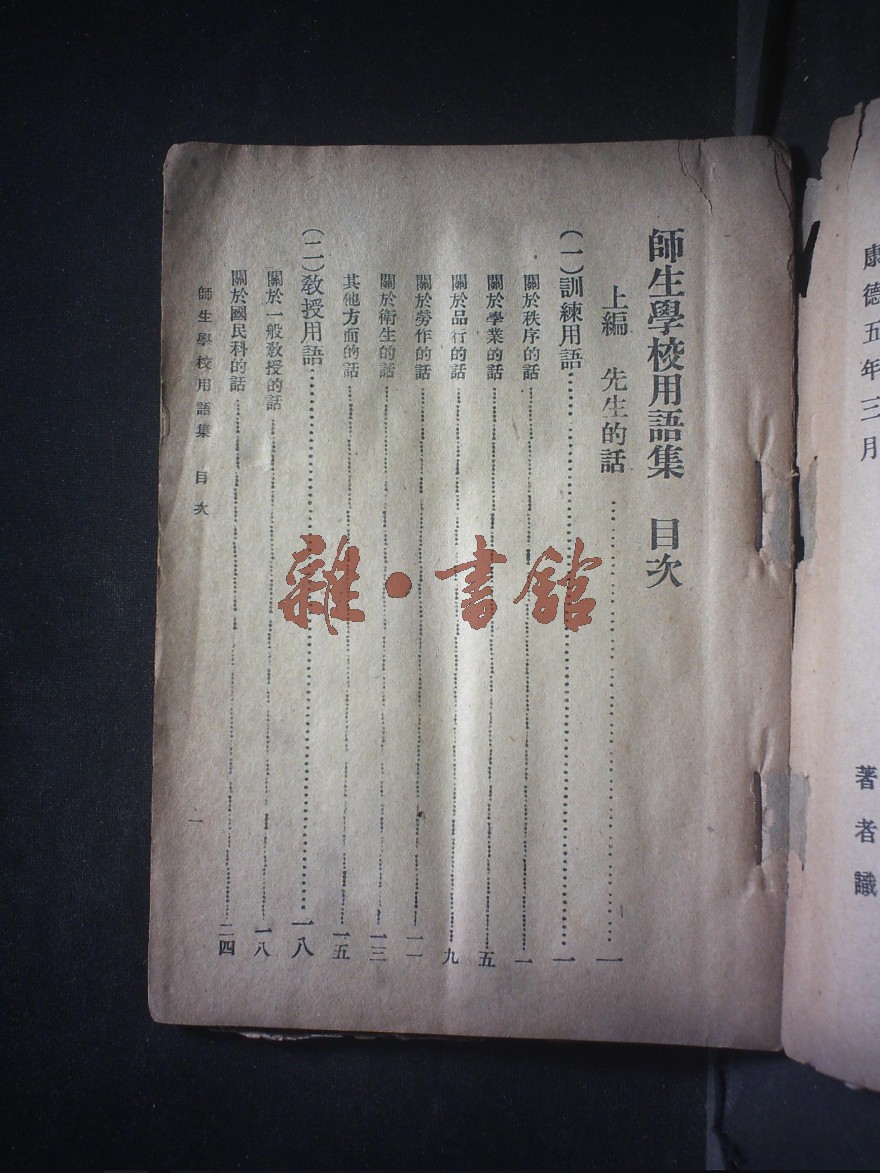 康德五年三月
著者識
師生學校用語集 目次
上編 先生的話 一
(一)訓練用語 一
關於秩序的話 一
關於學業的話 五
關於品行的話 九
關於勞作的話 一一
關於衛生的話 一三
其他方面的話 一五
(二)教授用語 一八
關於一般教授的話 一八
關於國民科的話 二四
師生學校用語集 目次 一
雜·書館